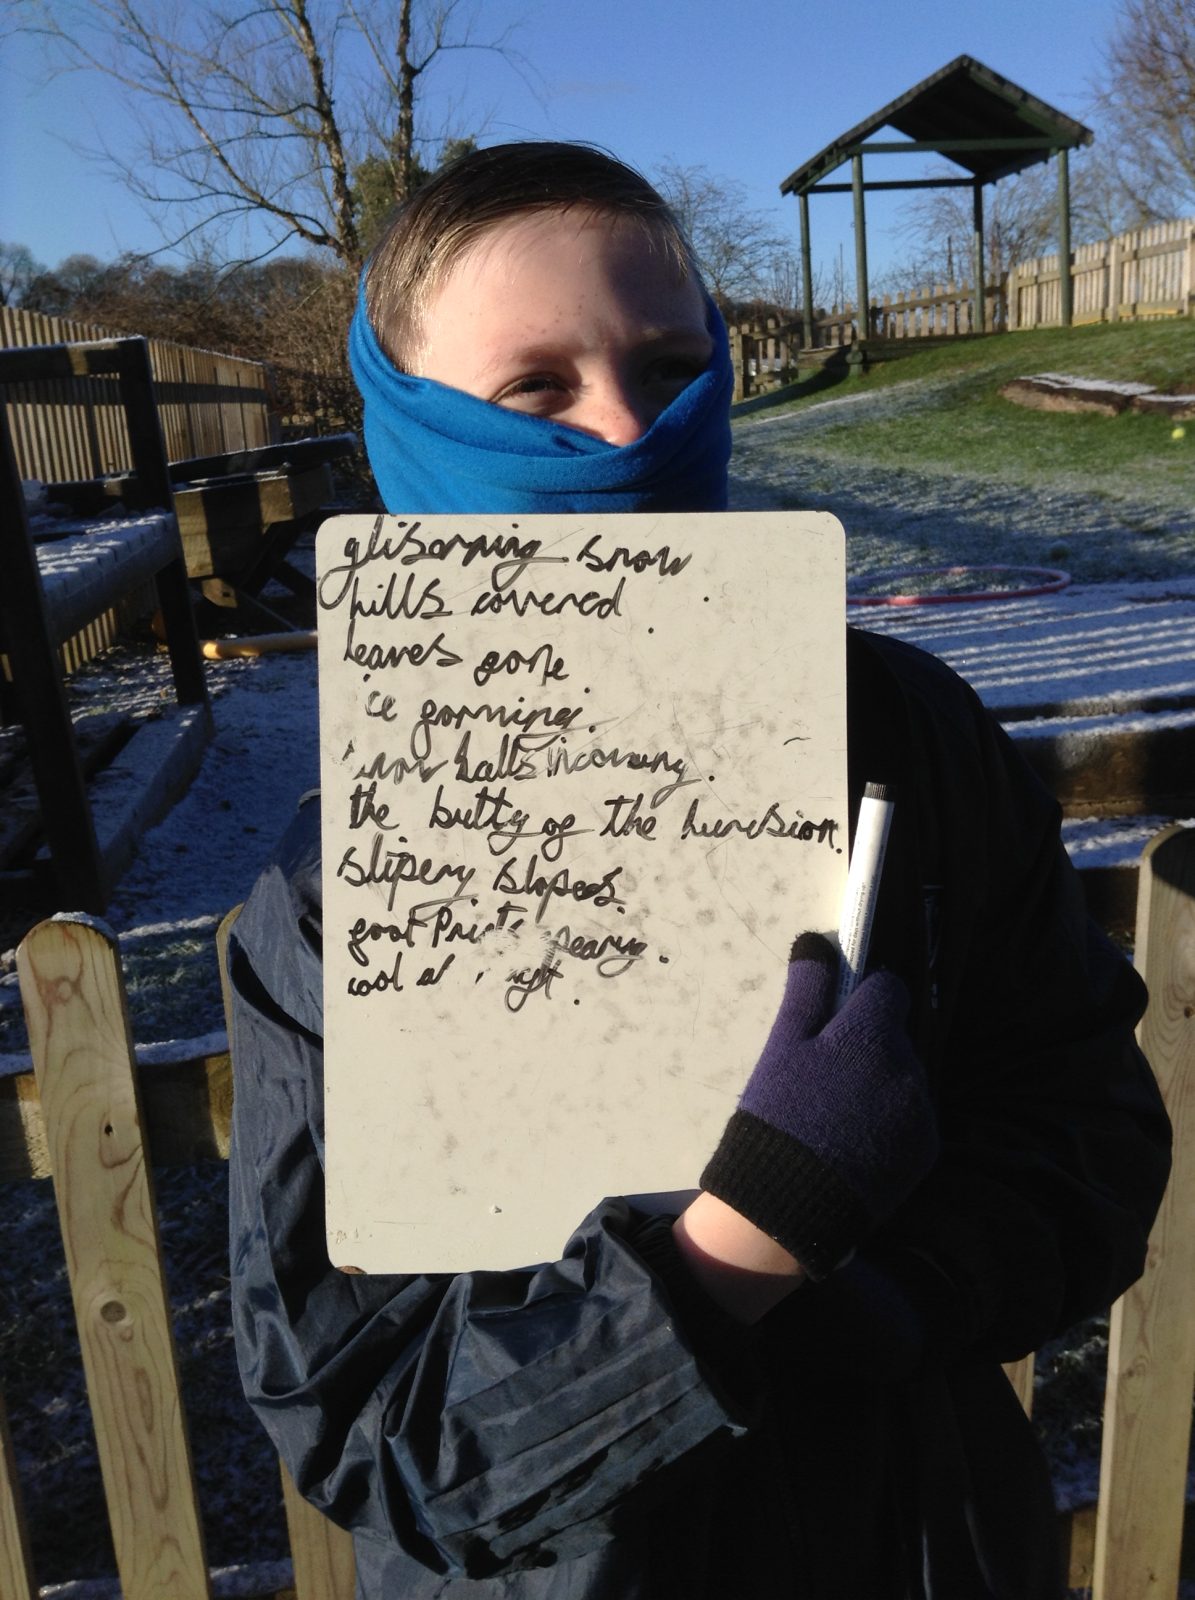 gliserning snow
hills covered .
leaves gone .
ice gorming.
snow balls incoming.
the butty og the hurision.
slipery slopes.
goot Prits pearing.
cool